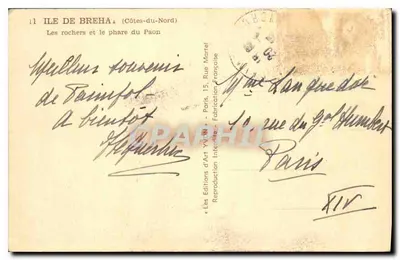 11 ILE DE BREHA. (Côtes-du-Nord)
Les rochers et le phare du Paon
Meilleur souvenir
de Paimpol
A bientôt
Mme Languedoc
10 rue du Gal Humbert
Paris
XIV
« Les Editions d'Art Yvon » - Paris, 15, Rue Martel
Reproduction Interdite Fabrication Française